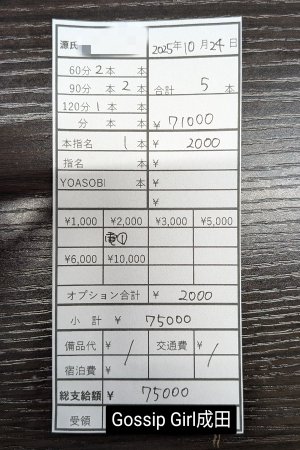 源氏 2025年10月24日
60分 2本 本
90分 本 2本 合計 5本
120分 1本 本
分 本 ¥ 71000
本指名 1本 ¥ 2000
指名 本 ¥
YOASOBI 本 ¥
¥
¥1,000 ¥2,000 ¥3,000 ¥5,000
①
¥6,000 ¥10,000
オプション合計 ¥ 2000
小計 ¥ 75000
備品代 ¥ / 交通費 ¥ /
宿泊費 ¥
総支給額 ¥ 75000
受領 Gossip Girl成田